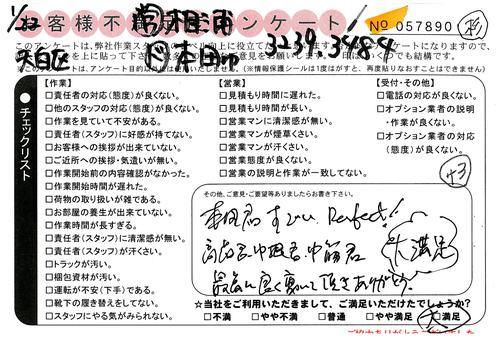 1/22 お客様不満足度アンケート No 057890 杉
このアンケートは、弊社作業スタッフの
3239.348.4
※このアンケートは、アンケート目的以外には使いません。(※情報保護シールは1度がすと、再度貼りなおすことはできません)
チェックリスト
【作業】
□責任者の対応(態度)が良くない。
□他のスタッフの対応(態度)が良くない。
□作業を見ていて不安がある。
□責任者(スタッフ)に好感が持てない。
□お客様への挨拶が出来ていない。
□ご近所への挨拶・気遣いが無い。
□作業開始前の内容確認がなかった。
□作業開始時間が遅れた。
□荷物の取り扱いが雑である。
□お部屋の養生が出来ていない。
□作業時間が長すぎる。
□責任者(スタッフ)に清潔感が無い。
□責任者(スタッフ)が汗くさい。
□トラックが汚い。
□梱包資材が汚い。
□運転が不安(下手)である。
□靴下の履き替えをしてない。
□スタッフにやる気がみられない。
【営業】
□見積もり時間に遅れた。
□見積もり時間が長い。
□営業マンに清潔感が無い。
□営業マンが煙草くさい。
□営業マンが汗くさい。
□営業態度が良くない。
□営業の説明と作業が一致してない。
【受付・その他】
□電話の対応が良くない。
□オプション業者の説明
・作業が良くない。
□オプション業者の対応
(態度)が良くない。
その他、ご意見・ご要望等ありましたらお書き下さい。
本田君 すごい Perfect!!
大満足
最高に良く動いて頂きありがとう
★当社をご利用いただきまして、ご満足いただけたでしょうか?
□不満 □やや不満 □普通 □やや満足 □満足
大